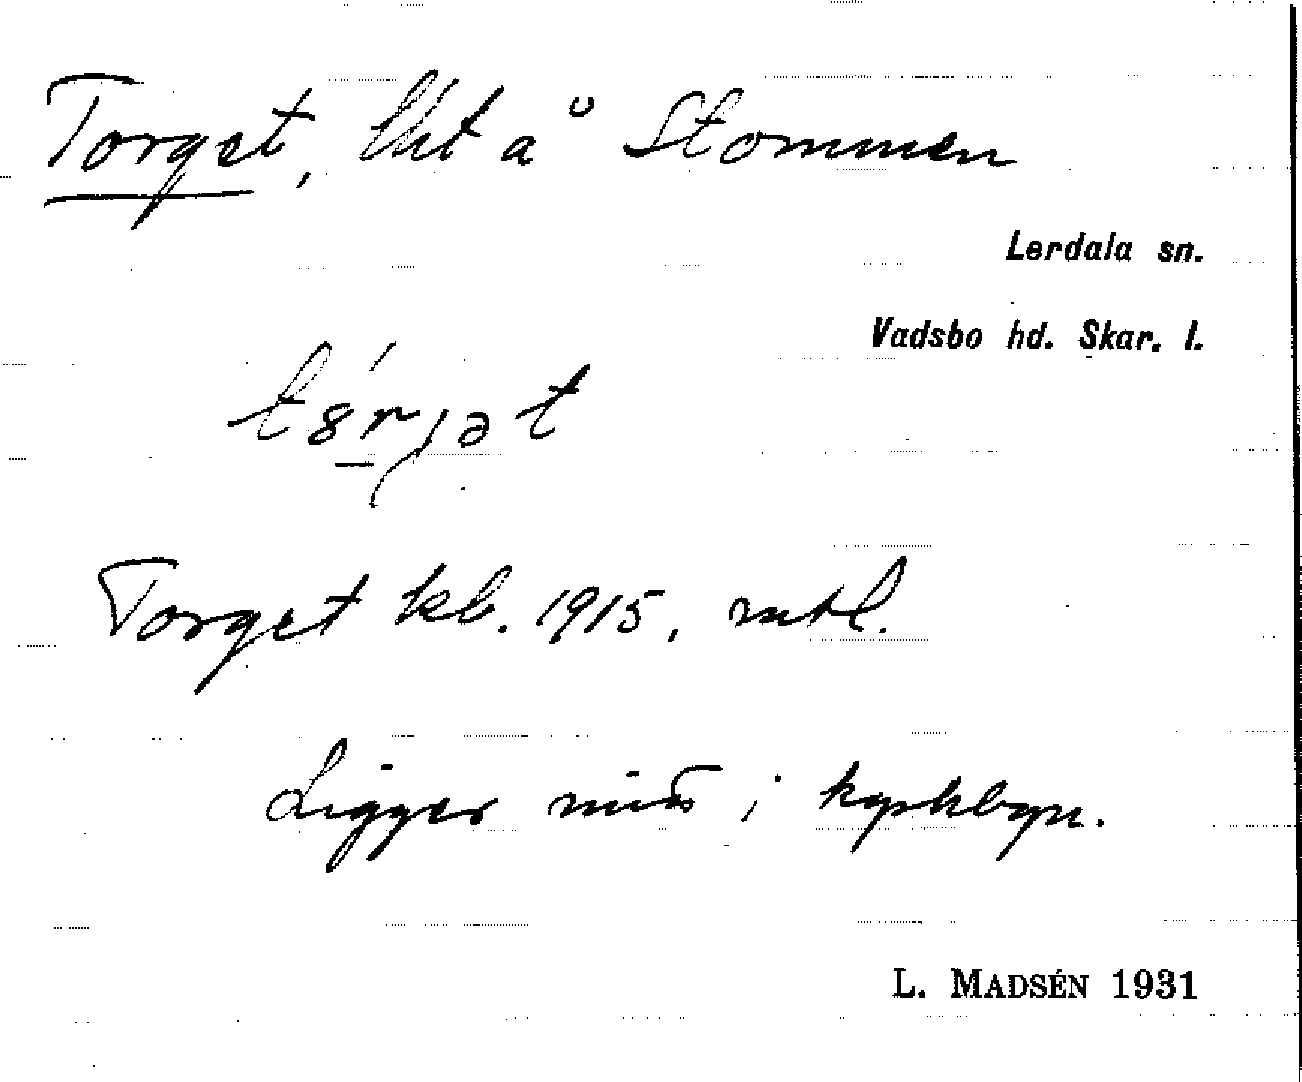 Torget, lht å Stommen
Lerdala sn.
Vadsbo hd. Skar. l.
Torget kb. 1915, mtl.
Ligger mitt i kyrkbyn.
L. MADSÉN 1931